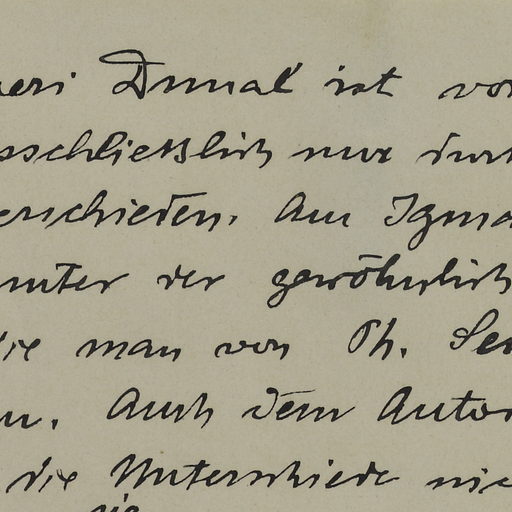 neri Dunal ist von
sschließlich nur durch
erschieden. Am Igma
unter der gewöhnlich
die man von Ph. Ser
n. Auch dem Autor
die Unterschiede nie